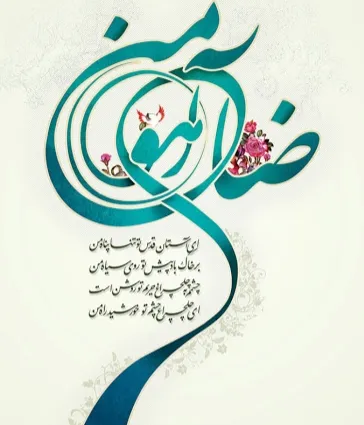 ضامن آهو
ای آستان قدس تو تنها پناه من
بر خاک باد پیش تو روی سیاه من
چشمم چلچراغ حریم تو روشن است
ای چلچراغ چشم تو خورشید راه من